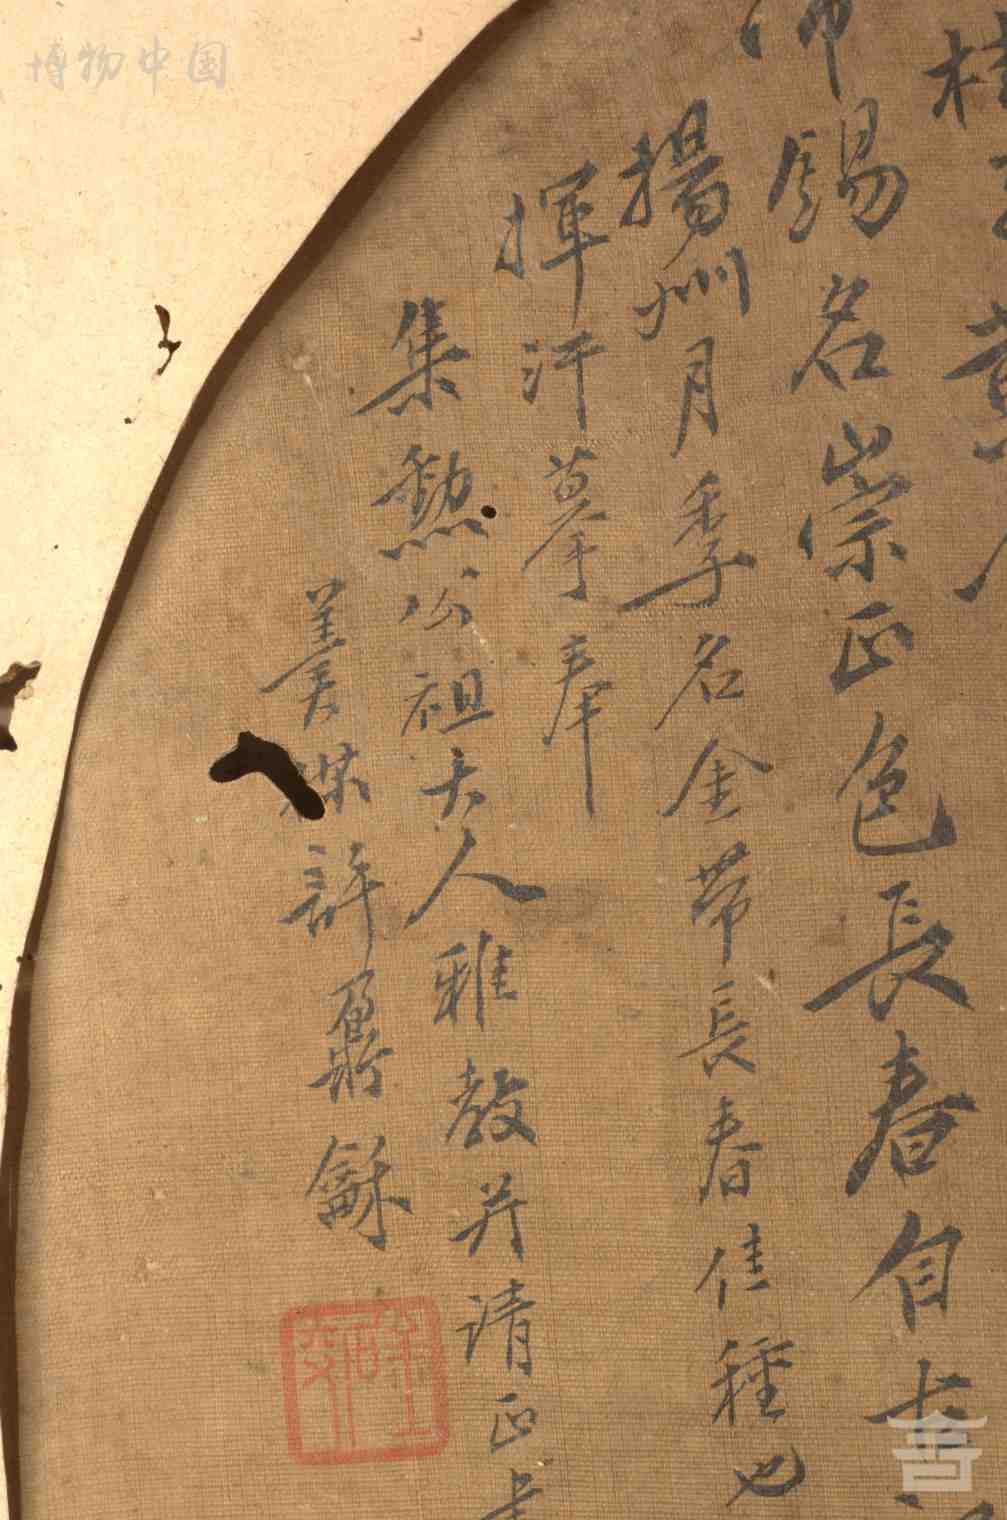 錫名崇正色長春自古
揚州月季名金帶長春佳種也
揮汗摹奉
集勲公祖大人雅教并請正
姜 許鼐龢
博物中国